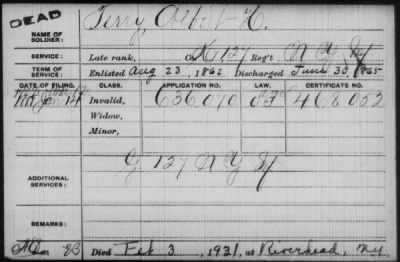 DEAD
NAME OF SOLDIER: Terry, Albert H.
SERVICE: Late rank, Co. K, 127 Reg't N Y Inf
TERM OF SERVICE: Enlisted Aug 23, 1862 Discharged June 30 1865
DATE OF FILING. CLASS. APPLICATION NO. LAW. CERTIFICATE NO.
Jan 14 Invalid, 636,040 468 052
Widow,
Minor,
ADDITIONAL SERVICES: G 127 N Y Inf
REMARKS:
Died Feb 3, 1921, at Riverhead, N.Y.